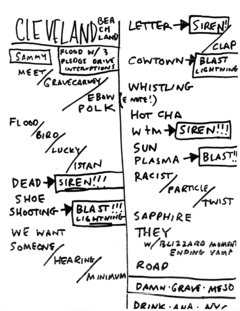 CLEVELAND BEACHLAND
SAMMY
FLOOD W/ 3
PLEDGE DRIVE
INTERRUPTIONS
MEET/
GRAVECARVEY/
EBOW
POLK
FLOOD/
BIRD/
LUCKY/
ISTAN
DEAD → SIREN!!!
SHOE
SHOOTING → BLAST!!!
LIGHTNING
WE WANT
SOMEONE/
HEARING/
MINIMUM
LETTER → SIREN!!
/CLAP
COWTOWN → BLAST
LIGHTNING
WHISTLING
(E NOTE!)
HOT CHA
W+M → SIREN!!!
SUN
PLASMA → BLAST!!
RACIST/
PARTICLE/
TWIST
SAPPHIRE
THEY
W/ BLIZZARD MOMENT
ENDING VAMP
ROAD
DAMN·GRAVE·MESO
DRINK·ANA·NYC